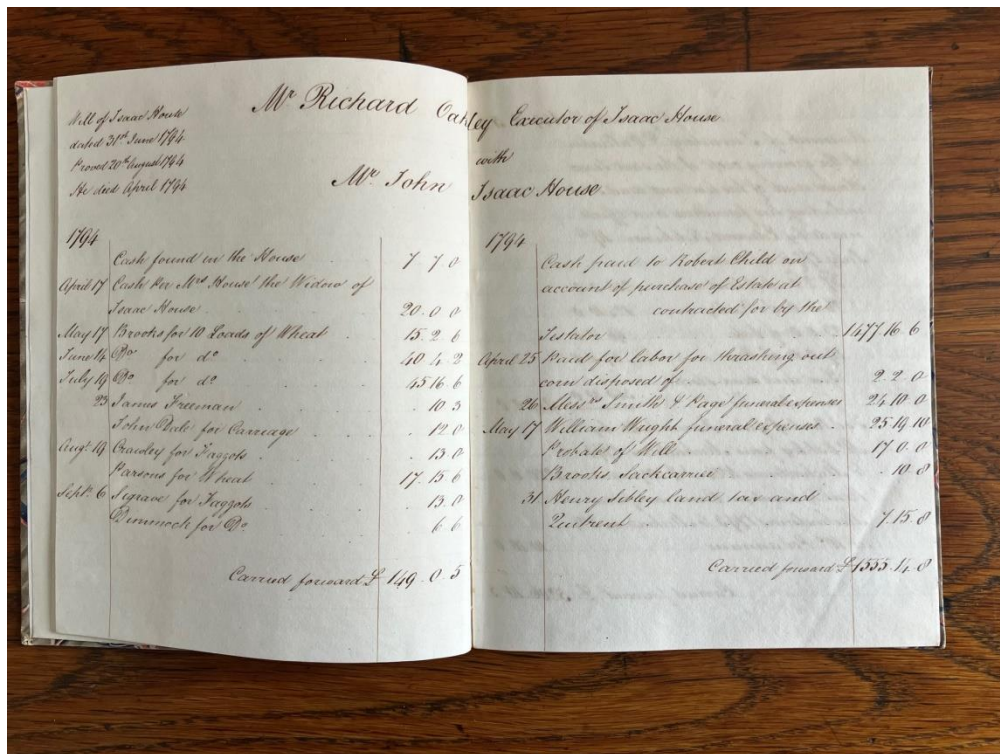 Mr Richard Oakley Executor of Isaac House
with
Mr John Isaac House
Will of Isaac House
dated 31st June 1794
Proved 20th August 1794
He died April 1794
1794
Cash found in the House 7. 7. 0
April 17 Cash per Mrs House the Widow of
Isaac House 20. 0. 0
May 17 Brooks for 10 Loads of Wheat 15. 2. 6
June 14 Do for do 40. 4. 2
July 19 Do for do 45. 16. 6
23 James Freeman 10. 3
John for Carriage 12. 0
Augt 19 Crawley for Faggots 13. 0
Parsons for Wheat 17. 15. 6
Septr 6 Segrave for Faggots 13. 0
Dimmock for Do 6. 6
Carried forward £ 149. 0. 5
1794
Cash paid to Robert Child on
account of purchase of Estate at
contracted for by the
Testator 1477. 16. 6
April 25 Paid for labor for thrashing out
corn disposed of 2. 2. 0
26 Messrs Smith & Page funeral expenses 24. 10. 0
May 17 William Weight funeral expenses 25. 19. 10
Probate of Will 17. 0. 0
Brooks Sackcarrier 10. 8
31 Henry Sibley land tax and
Quitrent 7. 15. 8
Carried forward £ 1555. 14. 8